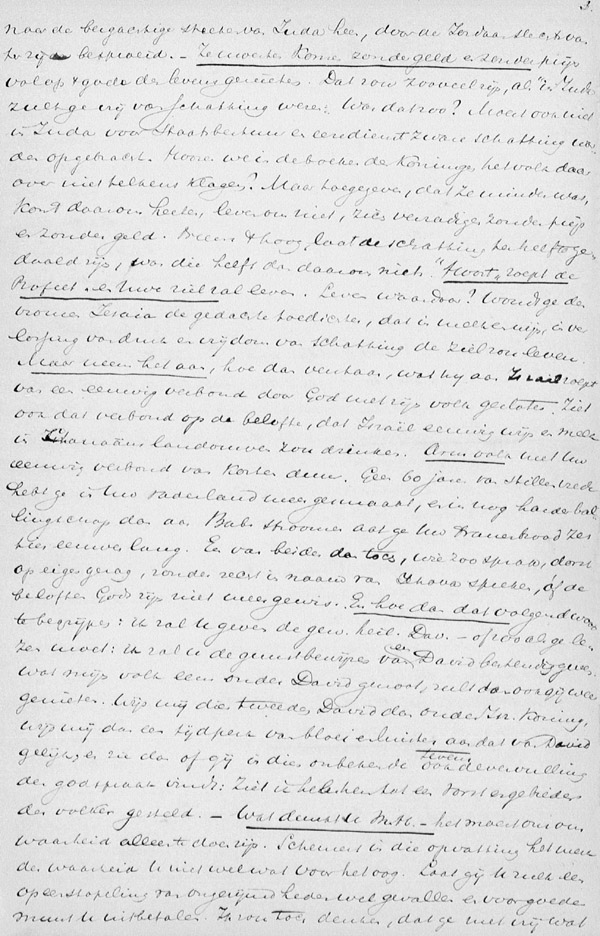 3.
naar de bergachtige streek van Juda heen, door de Jordaan slechts van
bespoeid. – Ze moesten komen zonder geld en zonder prijs
volop 't goede des levens genieten. Dat zou zooveel zijn, als "in Juda
zult ge vrij van schatting wezen. Was dat zoo? Moest ook niet
in Juda voor Staatsbestuur en eeredienst zware schatting wor-
den opgebracht. Hooren we in de boeken der Koningen het volk daar
over niet telkens klagen? Maar toegegeven, dat ze minder was,
kon 't daarom heeten, leven om niet, zich verzadigen zonder prijs
en zonder geld. Breng 't hoog, laat de schatting ter helft ge
daald zijn, was die helft dan daarom niets. "Hoort" roept de
Profeet "en Uwe ziel zal leven. Leven waardoor? Woudt ge den
vromen Jesaia de gedachte toedichten, dat in melk en wijn, in ver
lossing van druk en vrijdom van schatting de ziel zou leven.
Maar neem het aan, hoe dan verstaan, wat hij aan Israel roept
van een eeuwig verbond door God met zijn volk gesloten. Ziet
ook dat verbond op de belofte, dat Israël eeuwig wijn en melk
in Khanaäns landouwen zou drinken. Arm volk met Uw
eeuwig verbond van korten duur. Geen 60 jaren van stillen vrede
hebt ge in Uw vaderland meer gesmaakt, en in nog harder bal
lingschap dan aan Babels stroomen aat ge Uw tranenbrood zes
tien eeuwen lang. Een van beiden dan toch, wie zoo sprak, dorst
op eigen gezag, zonder recht in naam van Jehova spreken, óf de
beloften Gods zijn niet meer gewis. En hoe dan dat volgend woord
te begrijpen: ik zal U geven de gew. heil. Dav. – of zoo als ge le-
zen moet: ik zal U de gunstbewijzen aan David bestendig geven.
wat mijn volk eens onder David genoot, zult dan ook gij weer
genieten. Wijs mij dien tweeden David dan onder Isr. Koning,
wijs mij dan een tijdperk van bloei en luister aan dat v. David
gelijk, en zie dan of gij in dien onbekende tevens ook de vervulling
der godspraak vindt: Ziet ik heb hem tot een Vorst en gebieder
der volken gesteld. – Wat dunkt U M.H. – het moest ons om
waarheid alleen te doen zijn. Schemert in die opvatting het merk
der waarheid U niet wel wat voor het oog. Laat gij U zulk een
opeenstapeling van ongerijmdheden welgevallen en voor goede
munt U uitbetalen. Ik zou toch denken, dat ge met mij wat